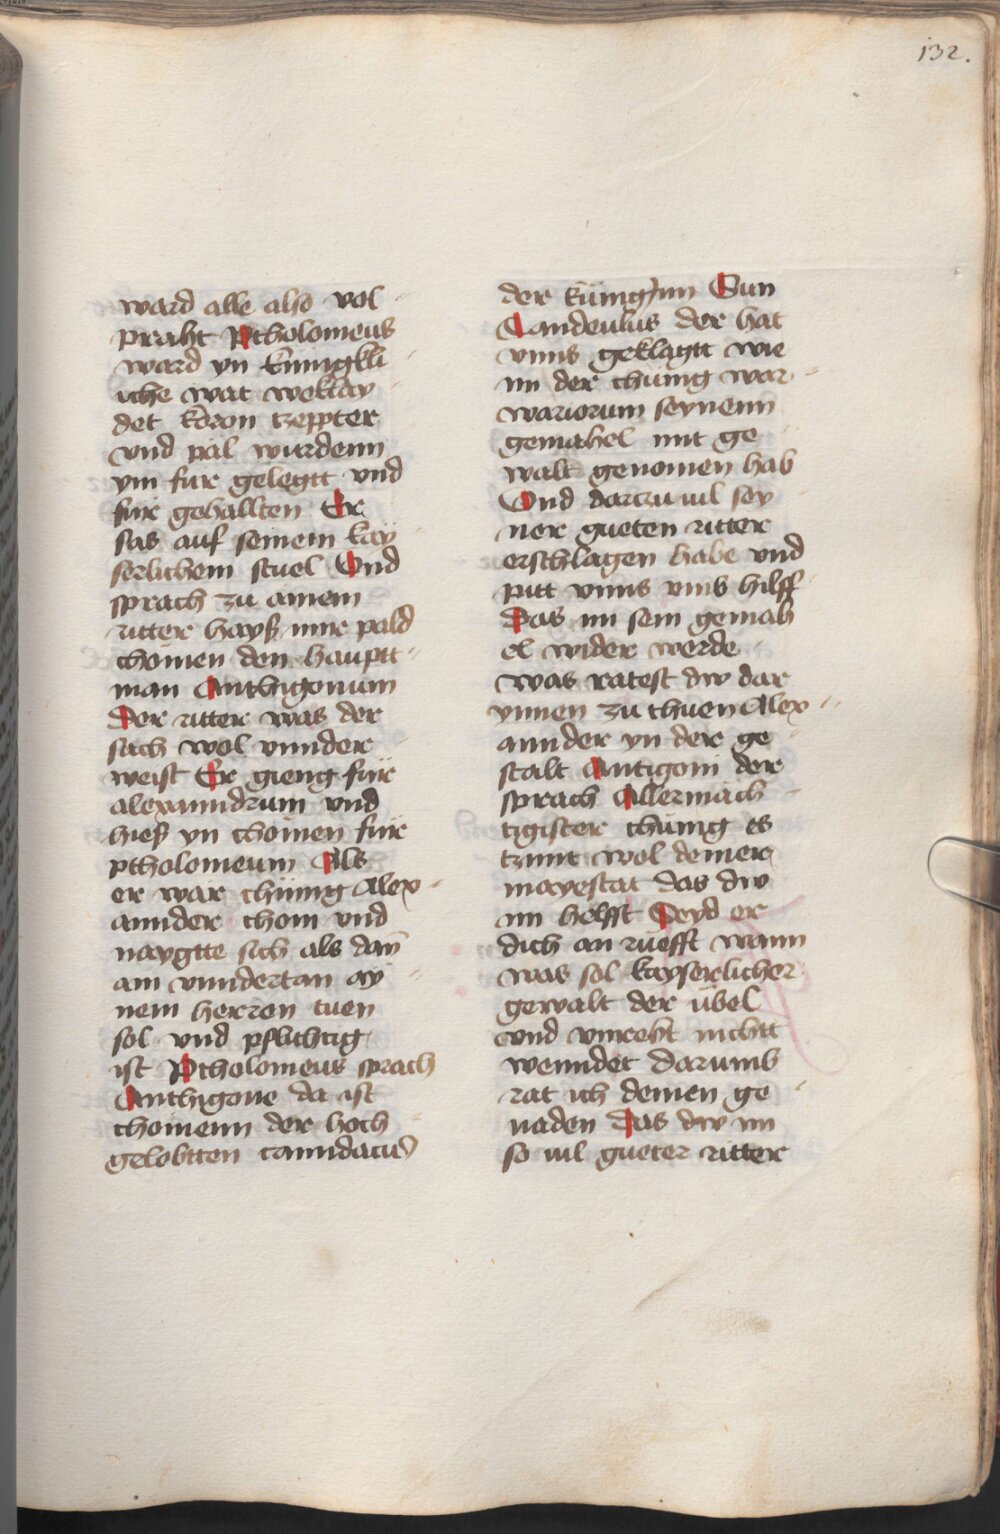 132.
ward alle also vol
praht Ptholomeus
ward yn künigkli
iche wat weklay
det koron tzeppter
vnd päl wurdenn
ym für gelegtt vnd
für gehallten Er
sas auf seinem kay
serlichem stuel Vnd
sprach zu ainem
ritter hayß mir pald
chömen den hauptt
man Anthigonum
Der ritter was der
sach wol vnnder
weist Er gieng für
alexanndrum vnd
hieß yn chömen für
ptholomeum Als
er wär chünig Alex
annder chom vnd
naygtte sich als dan̄
ain vnndertan ay
nem herren tuen
sol vnd pflichtig
ist Ptholomeus sprach
Anthigone da ist
chomenn der hoch
gelobtten canndacis
der künigynn Sun
Candeulus der hat
vnns geklagtt wie
im der chünig war
wariorum seynenn
gemahel mit ge
walt genomen hab
Vnd dartzu uil sey
ner gueten ritter
erschlagen habe vnd
pitt vnns vmb hilff
Das im sein gemah
el wider werde
was ratest dw dar
ynnen zu thuen Alex
annder yn der ge
stalt Antigoni der
sprach Allermäch
tigister chünig es
tzimt wol deiner
mayestat das dw
im helfft Seyd er
dich an rüefft wann
was sol kayserlicher
gewalt der übel
vnd vnreht nichtt
wenndet darumb
rat ich deinen ge
naden Das dw im
so uil gueter ritter